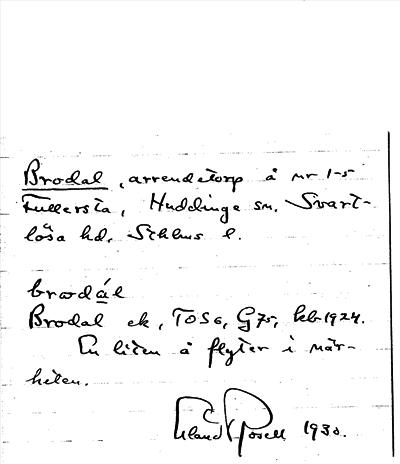 Brodal, arrendetorp å nr 1-5
Fullersta, Huddinge sn. Svart-
lösa hd, Sthlms l.
brωdál
Brodal ek, TOSG, G75, kb 1924.
En liten å flyter i när-
heten.
Erland Rosell 1930.